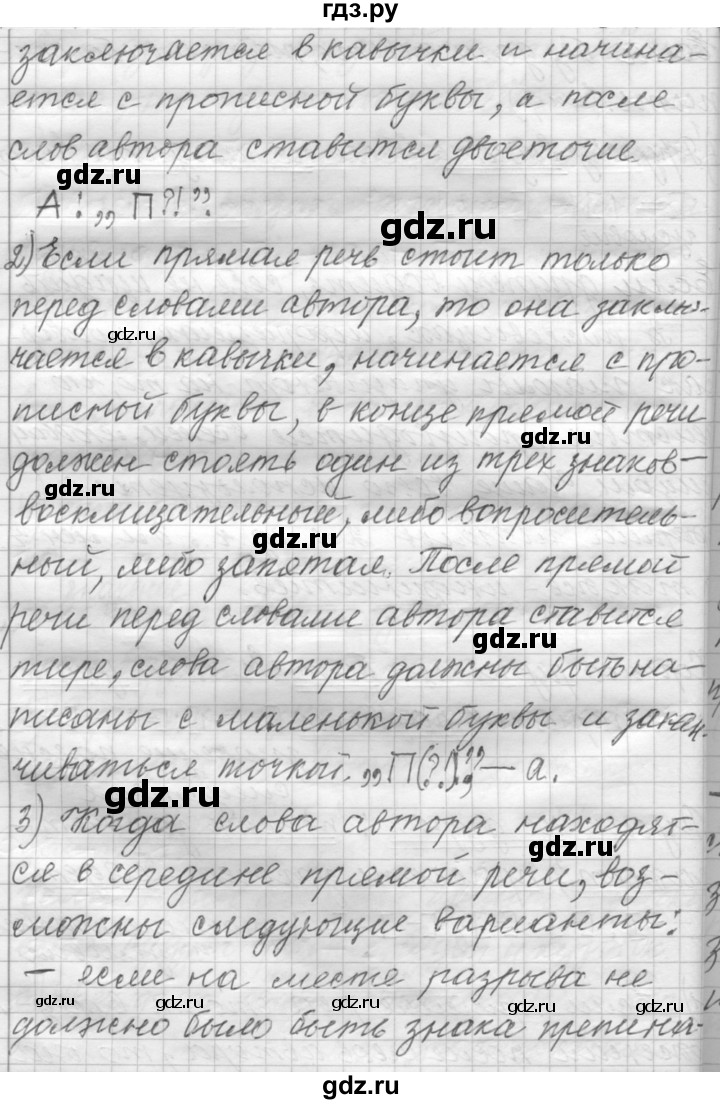 гдз.ру
заключается в кавычки и начина-
ется с прописной буквы, а после
слов автора ставится двоеточие
gdz.ru
А : „ П ?!”.
gdz.ru
2) Если прямая речь стоит только
перед словами автора, то она заклю-
gdz.ru
чается в кавычки, начинается с про-
писной буквы, в конце прямой речи
gdz.ru
должен стоять один из трех знаков-
gdz.ru
восклицательный, либо вопроситель-
gdz.ru
ный, либо запятая. После прямой
речи перед словами автора ставится
gdz.ru
тире, слова автора должны быть на-
писаны с маленькой буквы и закан-
чиваться точкой. „П(?!)”, — а.
gdz.ru
3) Когда слова автора находят-
gdz.ru
ся в середине прямой речи, воз-
можны следующие варианты:
— если на месте разрыва не
gdz.ru gdz.ru gdz.ru gdz.ru gdz.ru
должно было быть знака препина-
gdz.ru